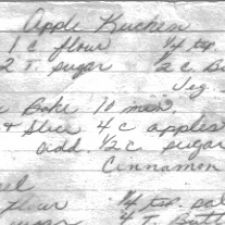 Apple Kuchen
1 c flour 1/4 tsp.
2 T. sugar 1/2 c B
Veg.
Bake 10 min.
+ Slice 4 c apples
add 1/2 c sugar
Cinnamon
flour 1/4 tsp. sal
sugar 1/4 T. Butt